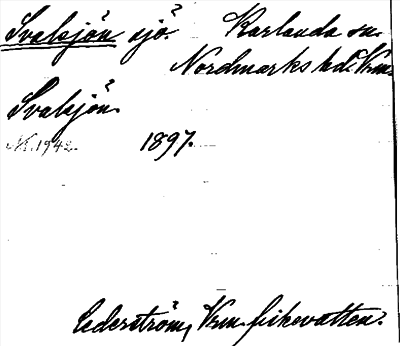 Svalsjön sjö? Karlanda sn.
Nordmarks hd. Vrm.
Svalsjön
1942.
1897.
Cederström, Vrm fiskevatten.